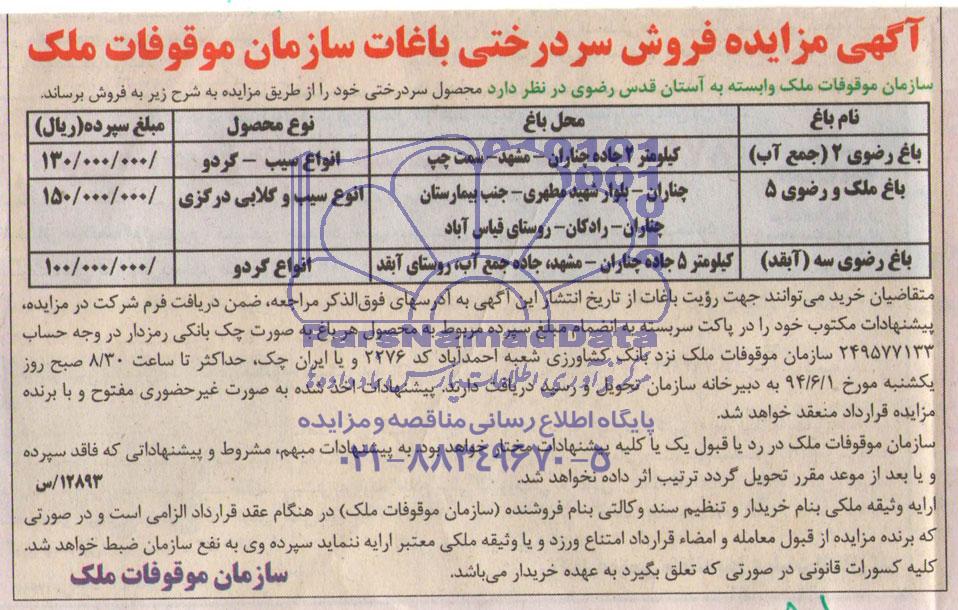 آگهی مزایده فروش سردرختی باغات سازمان موقوفات ملک
سازمان موقوفات ملک وابسته به آستان قدس رضوی در نظر دارد محصول سردرختی خود را از طریق مزایده به شرح زیر به فروش برساند.
نام باغ محل باغ نوع محصول مبلغ سپرده(ریال)
باغ رضوی ۲ (جمع آب) کیلومتر ۲ جاده چناران – مشهد– سمت چپ انواع سیب – گردو ۱۳۰/۰۰۰/۰۰۰/
باغ ملک و رضوی ۵ چناران – بلوار شهید مطهری– جنب بیمارستان انوع سیب و گلابی درگزی ۱۵۰/۰۰۰/۰۰۰/
چناران– رادکان– روستای قیاس آباد
باغ رضوی سه (آبقد) کیلومتر ۵ جاده چناران – مشهد، جاده جمع آب، روستای آبقد انواع گردو ۱۰۰/۰۰۰/۰۰۰/
متقاضیان خرید می‌توانند جهت رؤیت باغات از تاریخ انتشار این آگهی به آدرسهای فوق‌الذکر مراجعه، ضمن دریافت فرم شرکت در مزایده،
پیشنهادات مکتوب خود را در پاکت سربسته به انضمام مبلغ سپرده مربوط به محصول هر باغ به صورت چک بانکی رمزدار در وجه حساب
۲۴۹۵۷۷۱۳۳ سازمان موقوفات ملک نزد بانک کشاورزی شعبه احمدآباد کد ۲۲۷۶ و یا ایران چک، حداکثر تا ساعت ۸/۳۰ صبح روز
یکشنبه مورخ ۹۴/۶/۱ به دبیرخانه سازمان تحویل و رسید دریافت دارند. پیشنهادات اخذ شده به صورت غیرحضوری مفتوح و با برنده
مزایده قرارداد منعقد خواهد شد.
سازمان موقوفات ملک در رد یا قبول یک یا کلیه پیشنهادات مختار خواهد بود. به پیشنهادات مبهم، مشروط و پیشنهاداتی که فاقد سپرده
و یا بعد از موعد مقرر تحویل گردد ترتیب اثر داده نخواهد شد. ۱۲۸۹۳/س
ارایه وثیقه ملکی بنام خریدار و تنظیم سند وکالتی بنام فروشنده (سازمان موقوفات ملک) در هنگام عقد قرارداد الزامی است و در صورتی
که برنده مزایده از قبول معامله و امضاء قرارداد امتناع ورزد و یا وثیقه ملکی معتبر ارایه ننماید سپرده وی به نفع سازمان ضبط خواهد شد.
کلیه کسورات قانونی در صورتی که تعلق بگیرد به عهده خریدار می‌باشد.
سازمان موقوفات ملک
ParsNamadData
پایگاه اطلاع رسانی مناقصه و مزایده
۰۲۱-۸۸۳۴۹۶۷۰-۵